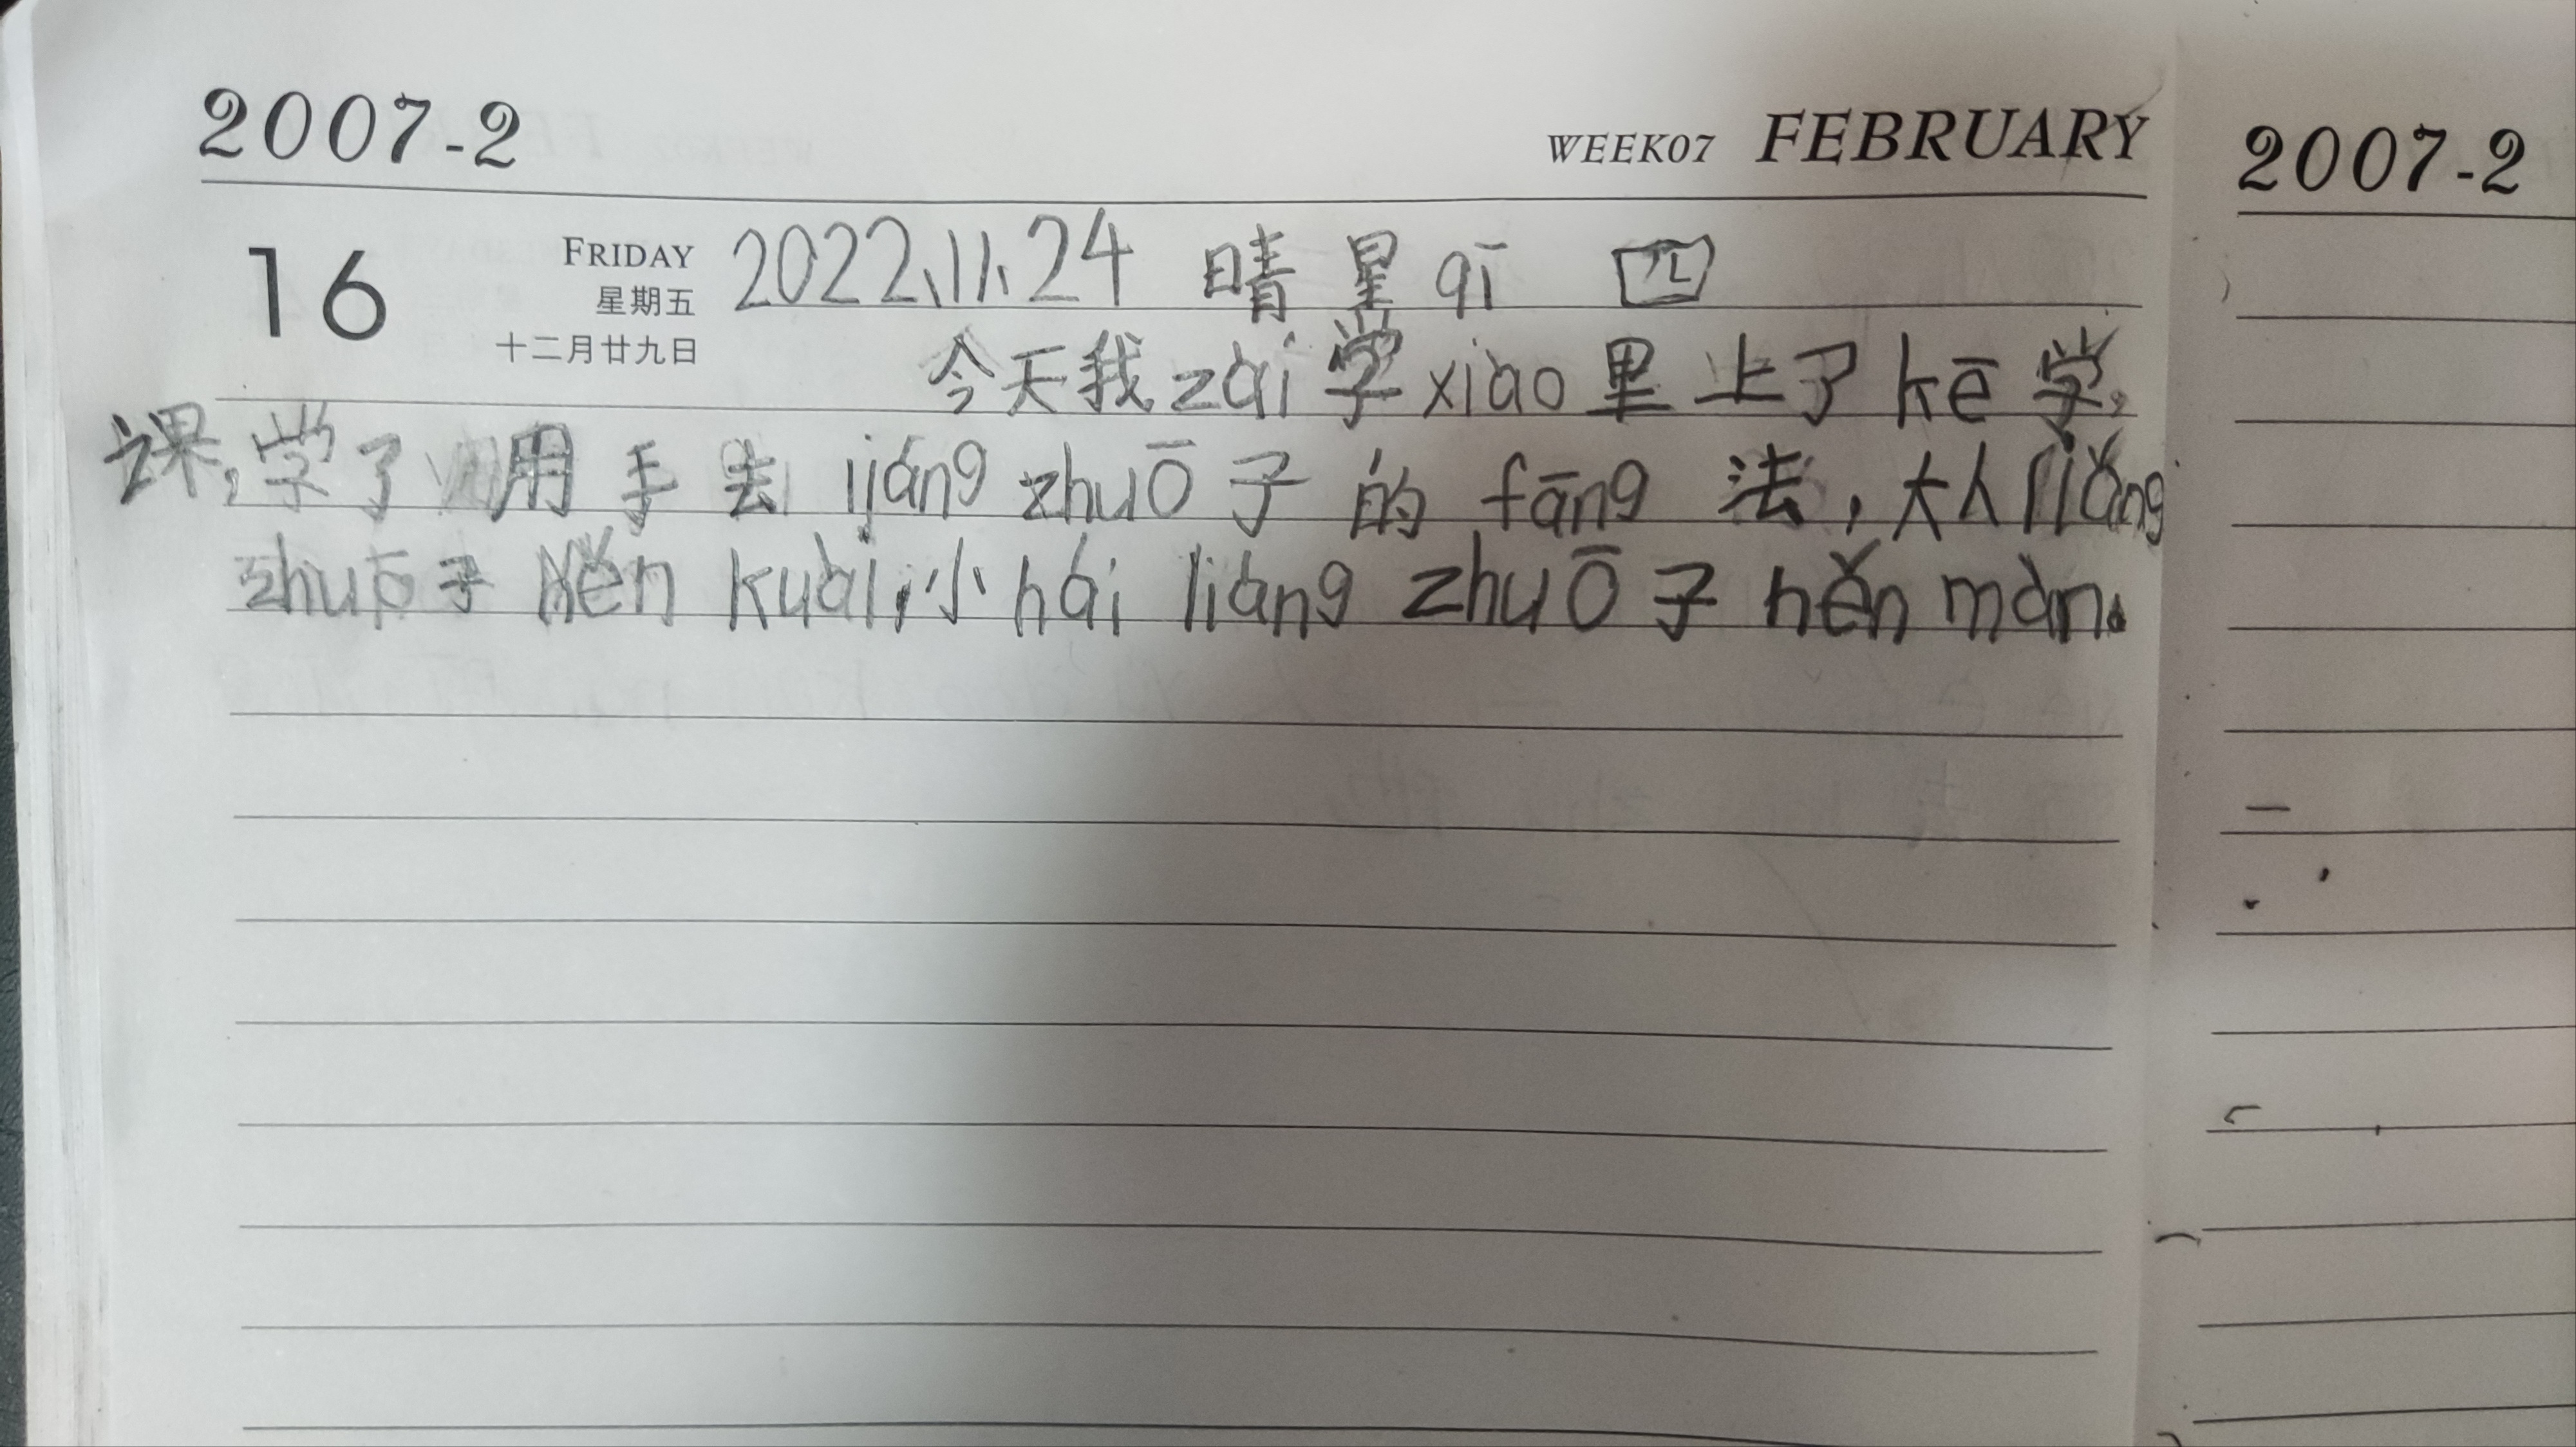 2007-2
WEEK07 FEBRUARY
16 FRIDAY
星期五
十二月廿九日
2022、11、24 晴 星qī 四
今天我zài学xiào里上了kē学,
课,学了用手去liáng zhuō子的fāng法,大人liǎng
zhuō子hěn kuài,小hái liáng zhuō子hěn màn.
2007-2